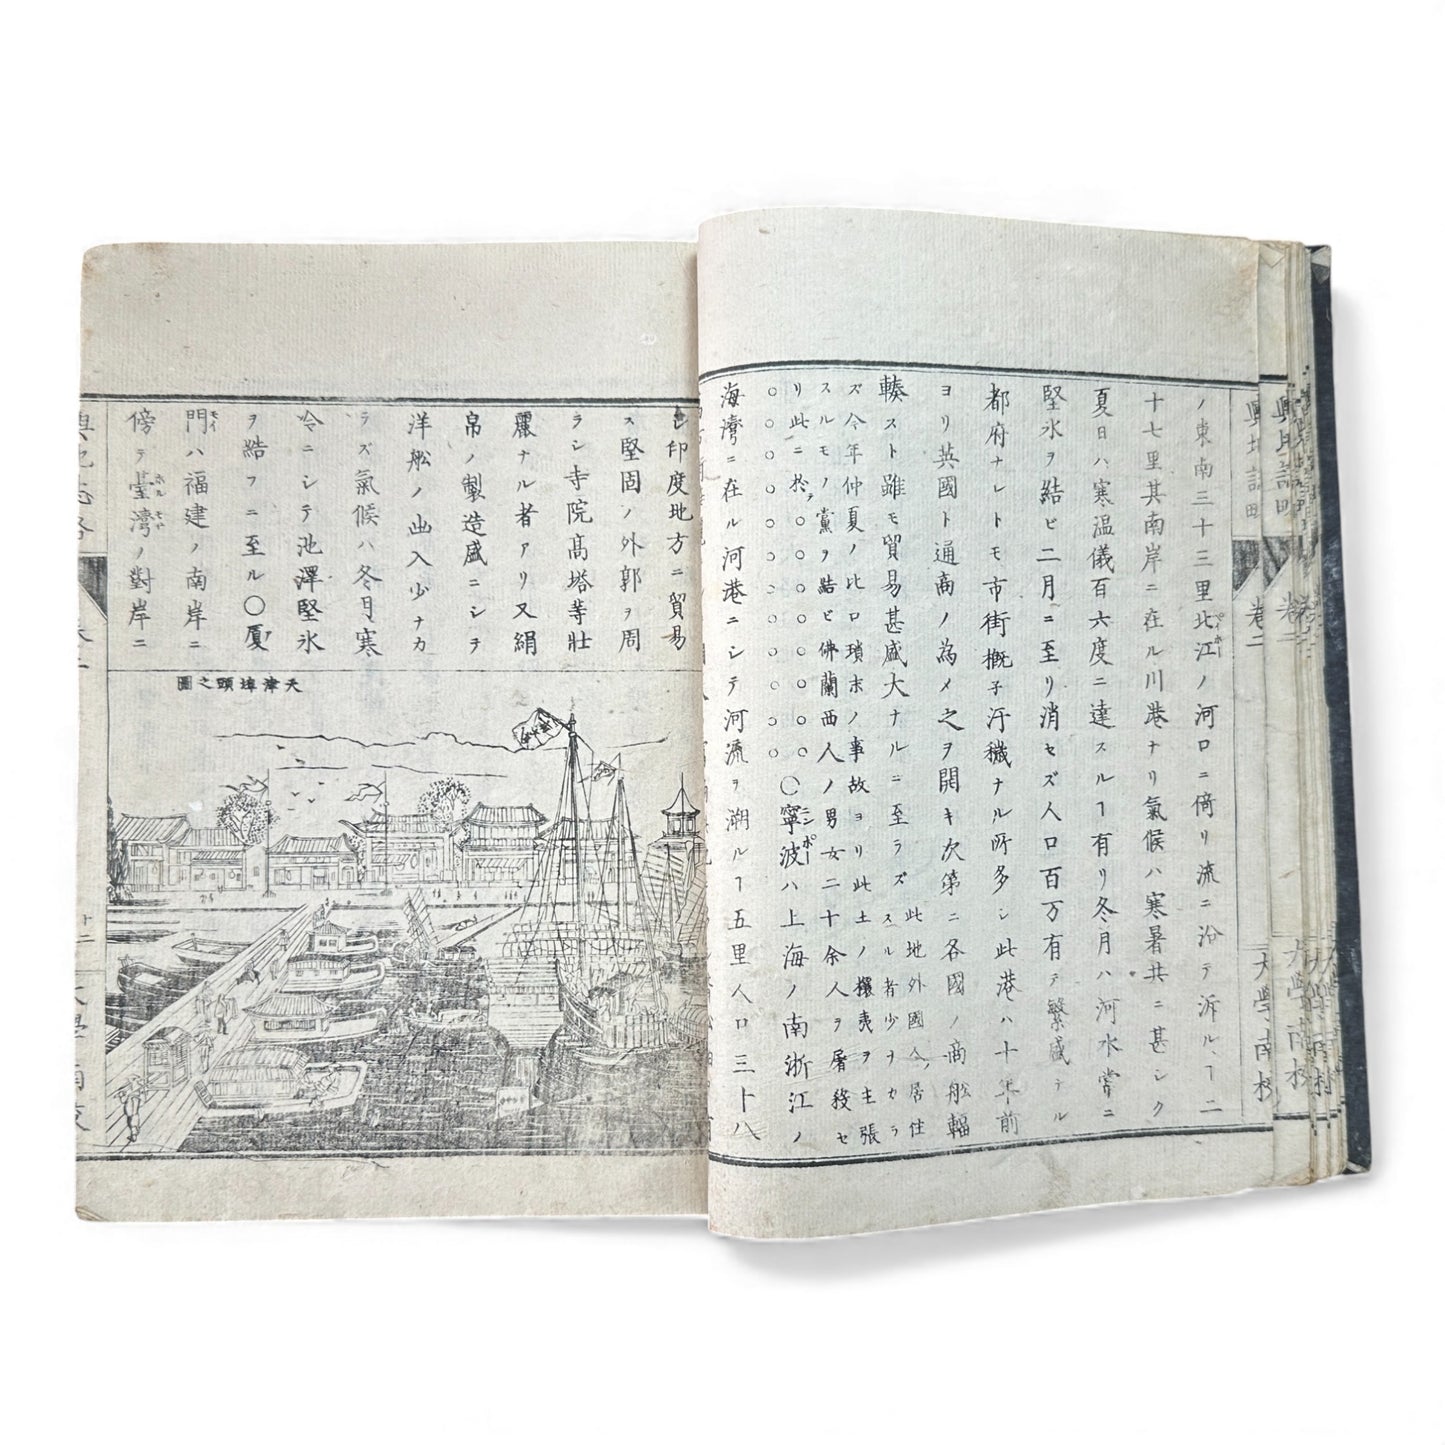 輿地誌略
卷二
大學南校
ノ東南三十三里北江ノ河口ニ倚リ流ニ沿テ泝ル、ヿ二
ペーホー
十七里其南岸ニ在ル川港ナリ氣候ハ寒暑共ニ甚シク
夏日ハ寒温儀百六度ニ達スルヿ有リ冬月ハ河水常ニ
堅氷ヲ結ビ二月ニ至リ消セズ人口百万有テ繁盛ナル
都府ナレトモ市街概子汙穢ナル所多シ此港ハ十年前
ヨリ英國ト通商ノ為メ之ヲ開キ次第ニ各國ノ商舩輻
輳スト雖モ貿易甚盛大ナルニ至ラズ
此地外國人居住
スル者少ヲカラ
ズ今年仲夏ノ比ロ瑣末ノ事故ヨリ此土ノ攘夷ヲ主張
スルモノ黨ヲ結ビ佛蘭西人ノ男女二十余人ヲ屠殺セ
リ此ニ於テ○○○○○○○
○○○○○○○○○○○○
○寧波ハ上海ノ南浙江ノ
ニンポー
海灣ニ在ル河港ニシテ河流ヲ溯ルヿ五里人口三十八
印度地方ニ貿易
ス堅固ノ外郭ヲ周
ラシ寺院髙塔等壯
麗ナル者アリ又絹
帛ノ製造盛ニシテ
洋舩ノ出入少ナカ
ラズ氣候ハ冬月寒
冷ニシテ池澤堅氷
ヲ結フニ至ル○厦
門ハ福建ノ南岸ニ
モイ
傍テ臺灣ノ對岸ニ
天津埠頭之圖
輿地誌略
十二
大學南校